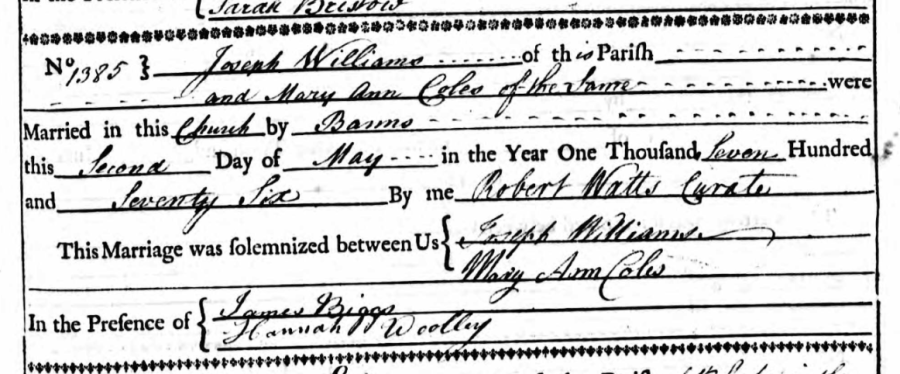 Sarah Bristow
No. 1385 } Joseph Williams of this Pariſh
and Mary Ann Coles of the Same were
Married in this Church by Banns
this Second Day of May in the Year One Thouſand Seven Hundred
and Seventy Six By me Robert Watts Curate
This Marriage was ſolemnized between Us { Joseph Williams
Mary Ann Coles
In the Preſence of { James Biggs
Hannah Woolley